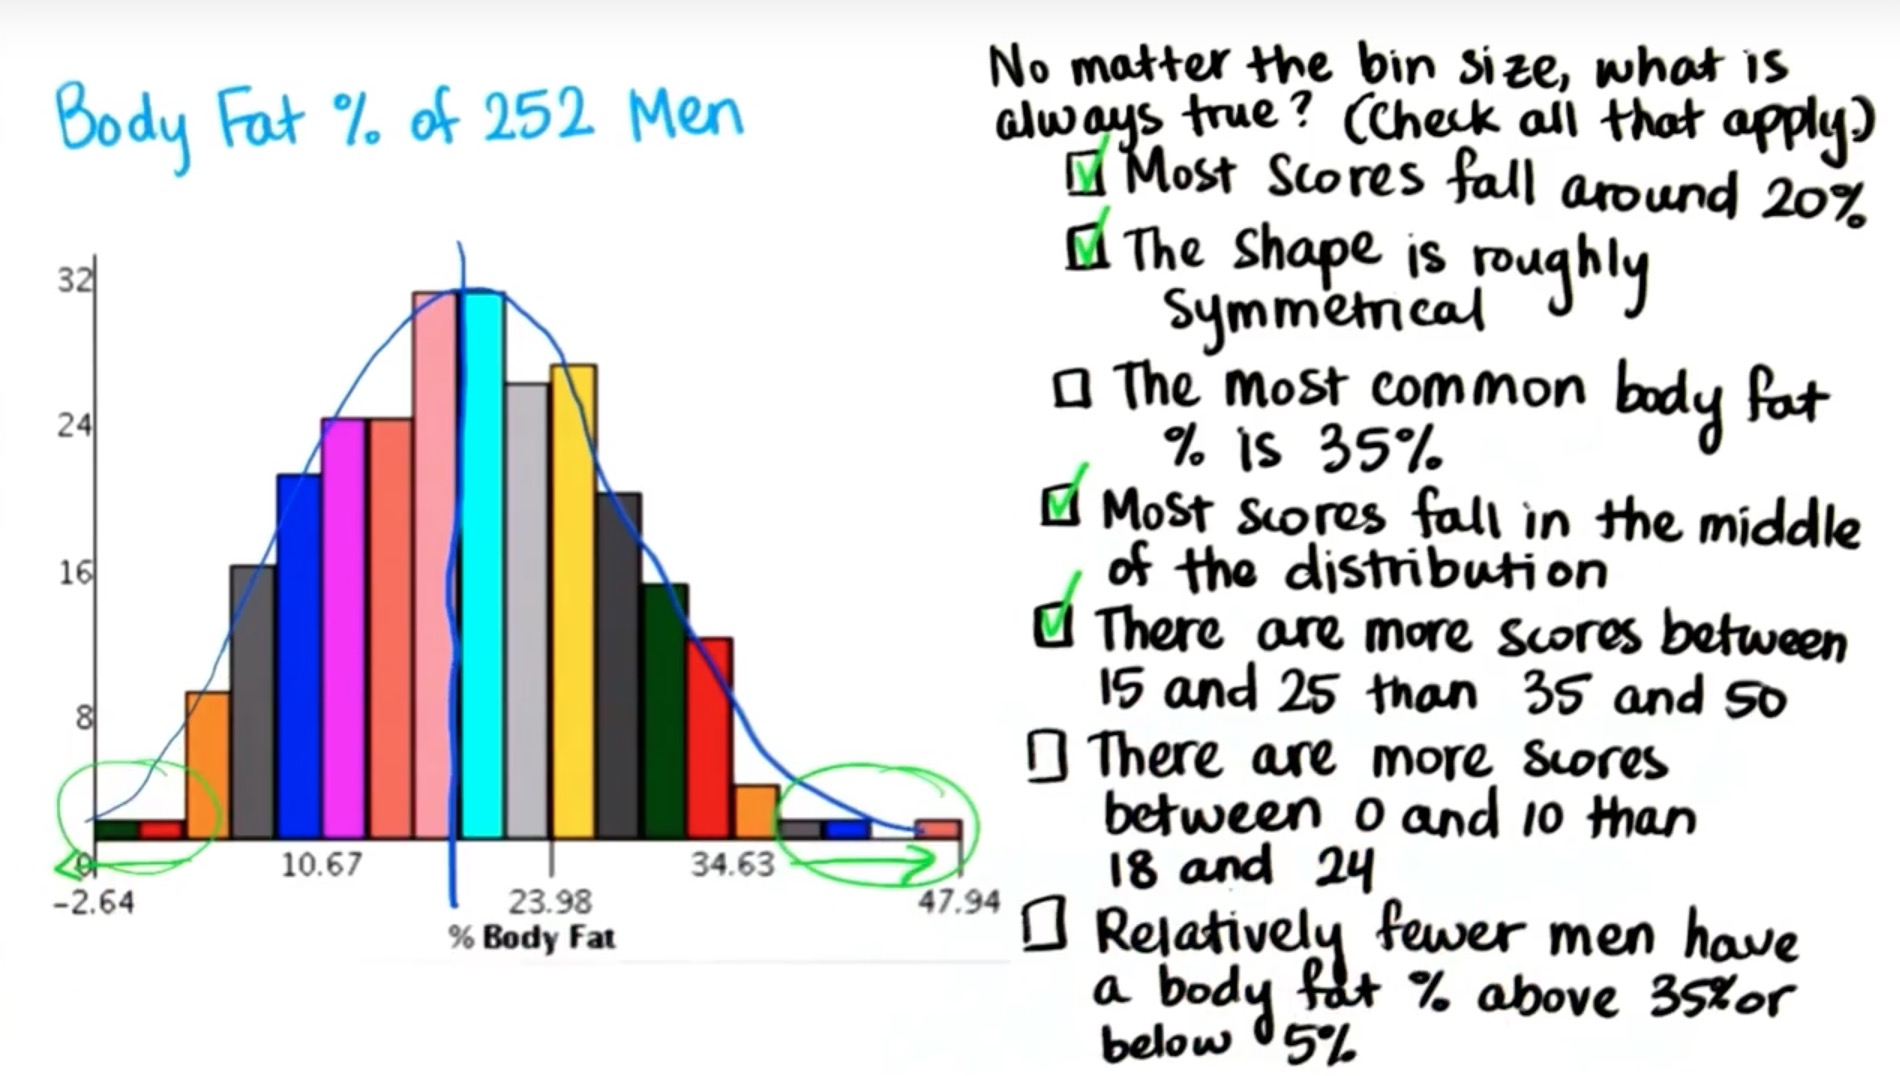 Body Fat % of 252 Men
32
24
16
8
0
10.67
34.63
-2.64
23.98
47.94
% Body Fat
No matter the bin size, what is
always true? (Check all that apply.)
Most Scores fall around 20%
The shape is roughly
symmetrical
The most common body fat
% is 35%
Most scores fall in the middle
of the distribution
There are more scores between
15 and 25 than 35 and 50
There are more scores
between 0 and 10 than
18 and 24
Relatively fewer men have
a body fat % above 35% or
below 5%